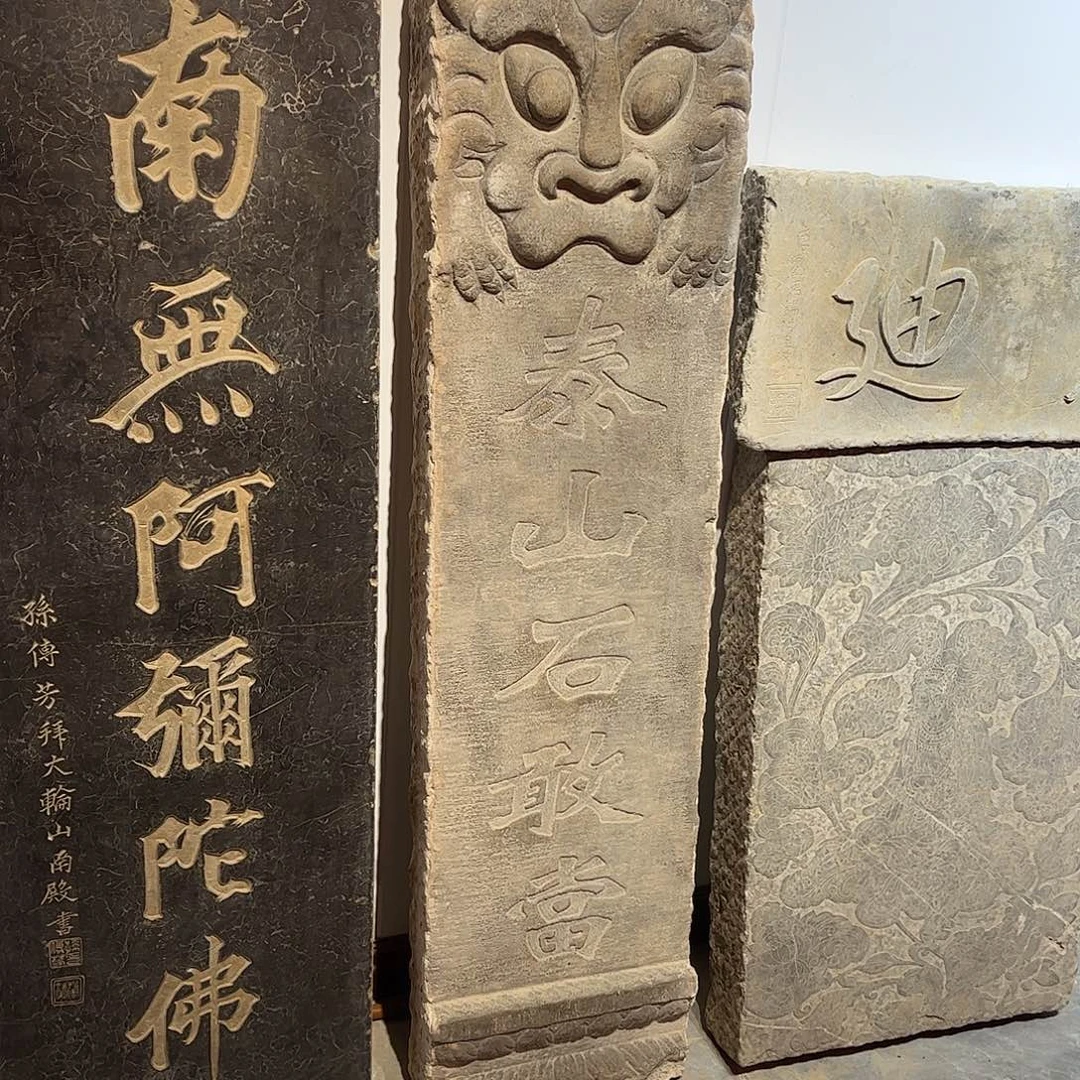 南無阿彌陀佛
孫傳芳拜大輪山南殿書
泰山石敢當
迪